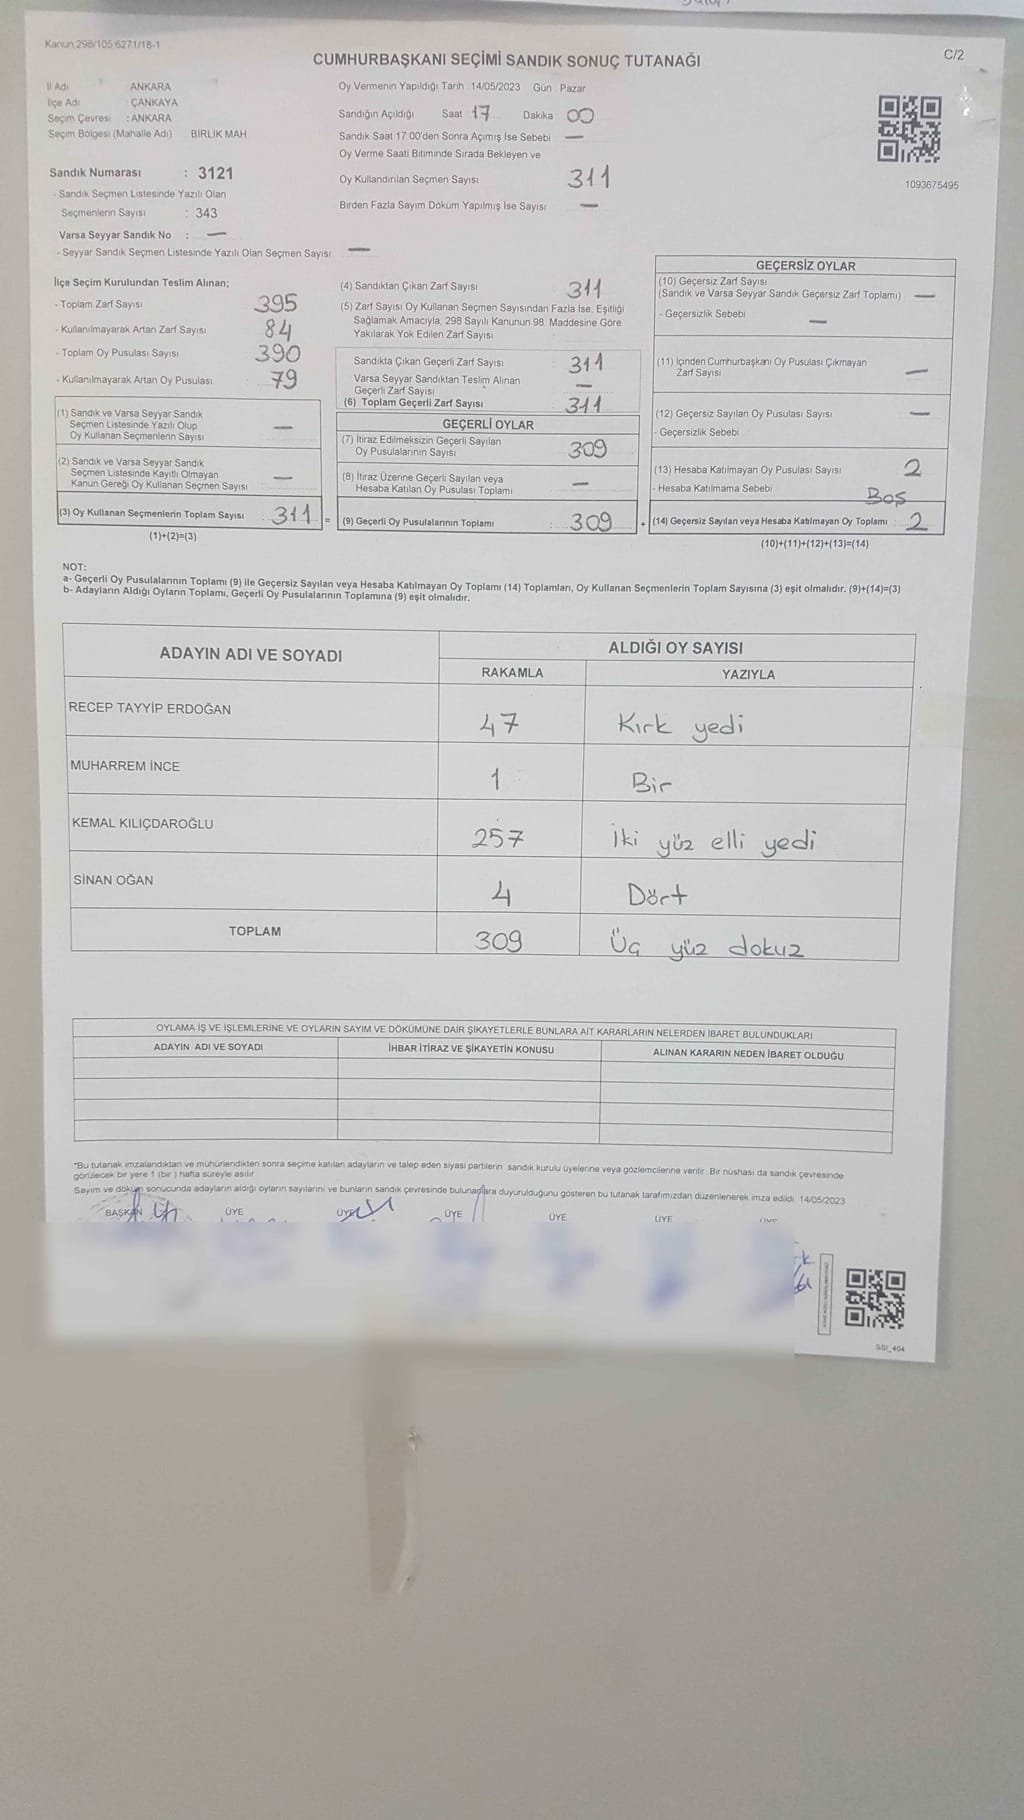 Kanun:298/105:6271/18-1
C/2
CUMHURBAŞKANI SEÇİMİ SANDIK SONUÇ TUTANAĞI
İl Adı ANKARA
İlçe Adı : ÇANKAYA
Seçim Çevresi : ANKARA
Seçim Bölgesi (Mahalle Adı) BİRLİK MAH
Oy Vermenin Yapıldığı Tarih : 14/05/2023 Gün : Pazar
Sandığın Açıldığı Saat 17 Dakika 00
Sandık Saat 17.00'den Sonra Açımış İse Sebebi —
Oy Verme Saati Bitiminde Sırada Bekleyen ve
Oy Kullandırılan Seçmen Sayısı 311
Birden Fazla Sayım Döküm Yapılmış İse Sayısı —
1093675495
Sandık Numarası : 3121
- Sandık Seçmen Listesinde Yazılı Olan
Seçmenlerin Sayısı : 343
Varsa Seyyar Sandık No : —
- Seyyar Sandık Seçmen Listesinde Yazılı Olan Seçmen Sayısı —
İlçe Seçim Kurulundan Teslim Alınan;
- Toplam Zarf Sayısı 395
- Kullanılmayarak Artan Zarf Sayısı 84
- Toplam Oy Pusulası Sayısı 390
- Kullanılmayarak Artan Oy Pusulası 79
(1) Sandık ve Varsa Seyyar Sandık
Seçmen Listesinde Yazılı Olup
Oy Kullanan Seçmenlerin Sayısı —
(2) Sandık ve Varsa Seyyar Sandık
Seçmen Listesinde Kayıtlı Olmayan
Kanun Gereği Oy Kullanan Seçmen Sayısı —
(3) Oy Kullanan Seçmenlerin Toplam Sayısı : 311 =
(1)+(2)=(3)
(4) Sandıktan Çıkan Zarf Sayısı 311
(5) Zarf Sayısı Oy Kullanan Seçmen Sayısından Fazla İse, Eşitliği
Sağlamak Amacıyla, 298 Sayılı Kanunun 98. Maddesine Göre
Yakılarak Yok Edilen Zarf Sayısı
Sandıkta Çıkan Geçerli Zarf Sayısı 311
Varsa Seyyar Sandıktan Teslim Alınan
Geçerli Zarf Sayısı —
(6) Toplam Geçerli Zarf Sayısı 311
GEÇERLİ OYLAR
(7) İtiraz Edilmeksizin Geçerli Sayılan
Oy Pusulalarının Sayısı 309
(8) İtiraz Üzerine Geçerli Sayılan veya
Hesaba Katılan Oy Pusulası Toplamı —
(9) Geçerli Oy Pusulalarının Toplamı : 309 +
GEÇERSİZ OYLAR
(10) Geçersiz Zarf Sayısı
(Sandık ve Varsa Seyyar Sandık Geçersiz Zarf Toplamı) —
- Geçersizlik Sebebi —
(11) İçinden Cumhurbaşkanı Oy Pusulası Çıkmayan
Zarf Sayısı —
(12) Geçersiz Sayılan Oy Pusulası Sayısı —
- Geçersizlik Sebebi
(13) Hesaba Katılmayan Oy Pusulası Sayısı 2
- Hesaba Katılmama Sebebi Boş
(14) Geçersiz Sayılan veya Hesaba Katılmayan Oy Toplamı : 2
(10)+(11)+(12)+(13)=(14)
NOT:
a- Geçerli Oy Pusulalarının Toplamı (9) ile Geçersiz Sayılan veya Hesaba Katılmayan Oy Toplamı (14) Toplamları, Oy Kullanan Seçmenlerin Toplam Sayısına (3) eşit olmalıdır. (9)+(14)=(3)
b- Adayların Aldığı Oyların Toplamı, Geçerli Oy Pusulalarının Toplamına (9) eşit olmalıdır.
ADAYIN ADI VE SOYADI ALDIĞI OY SAYISI
RAKAMLA YAZIYLA
RECEP TAYYİP ERDOĞAN 47 Kırk yedi
MUHARREM İNCE 1 Bir
KEMAL KILIÇDAROĞLU 257 İki yüz elli yedi
SİNAN OĞAN 4 Dört
TOPLAM 309 Üç yüz dokuz
OYLAMA İŞ VE İŞLEMLERİNE VE OYLARIN SAYIM VE DÖKÜMÜNE DAİR ŞİKAYETLERLE BUNLARA AİT KARARLARIN NELERDEN İBARET BULUNDUKLARI
ADAYIN ADI VE SOYADI İHBAR İTİRAZ VE ŞİKAYETİN KONUSU ALINAN KARARIN NEDEN İBARET OLDUĞU
*Bu tutanak imzalandıktan ve mühürlendikten sonra seçime katılan adayların ve talep eden siyasi partilerin sandık kurulu üyelerine veya gözlemcilerine verilir. Bir nüshası da sandık çevresinde
görülecek bir yere 1 (bir) hafta süreyle asılır
Sayım ve döküm sonucunda adayların aldığı oyların sayılarını ve bunların sandık çevresinde bulunanlara duyurulduğunu gösteren bu tutanak tarafımızdan düzenlenerek imza edildi. 14/05/2023
BAŞKAN ÜYE ÜYE ÜYE ÜYE ÜYE ÜYE
SSI_404